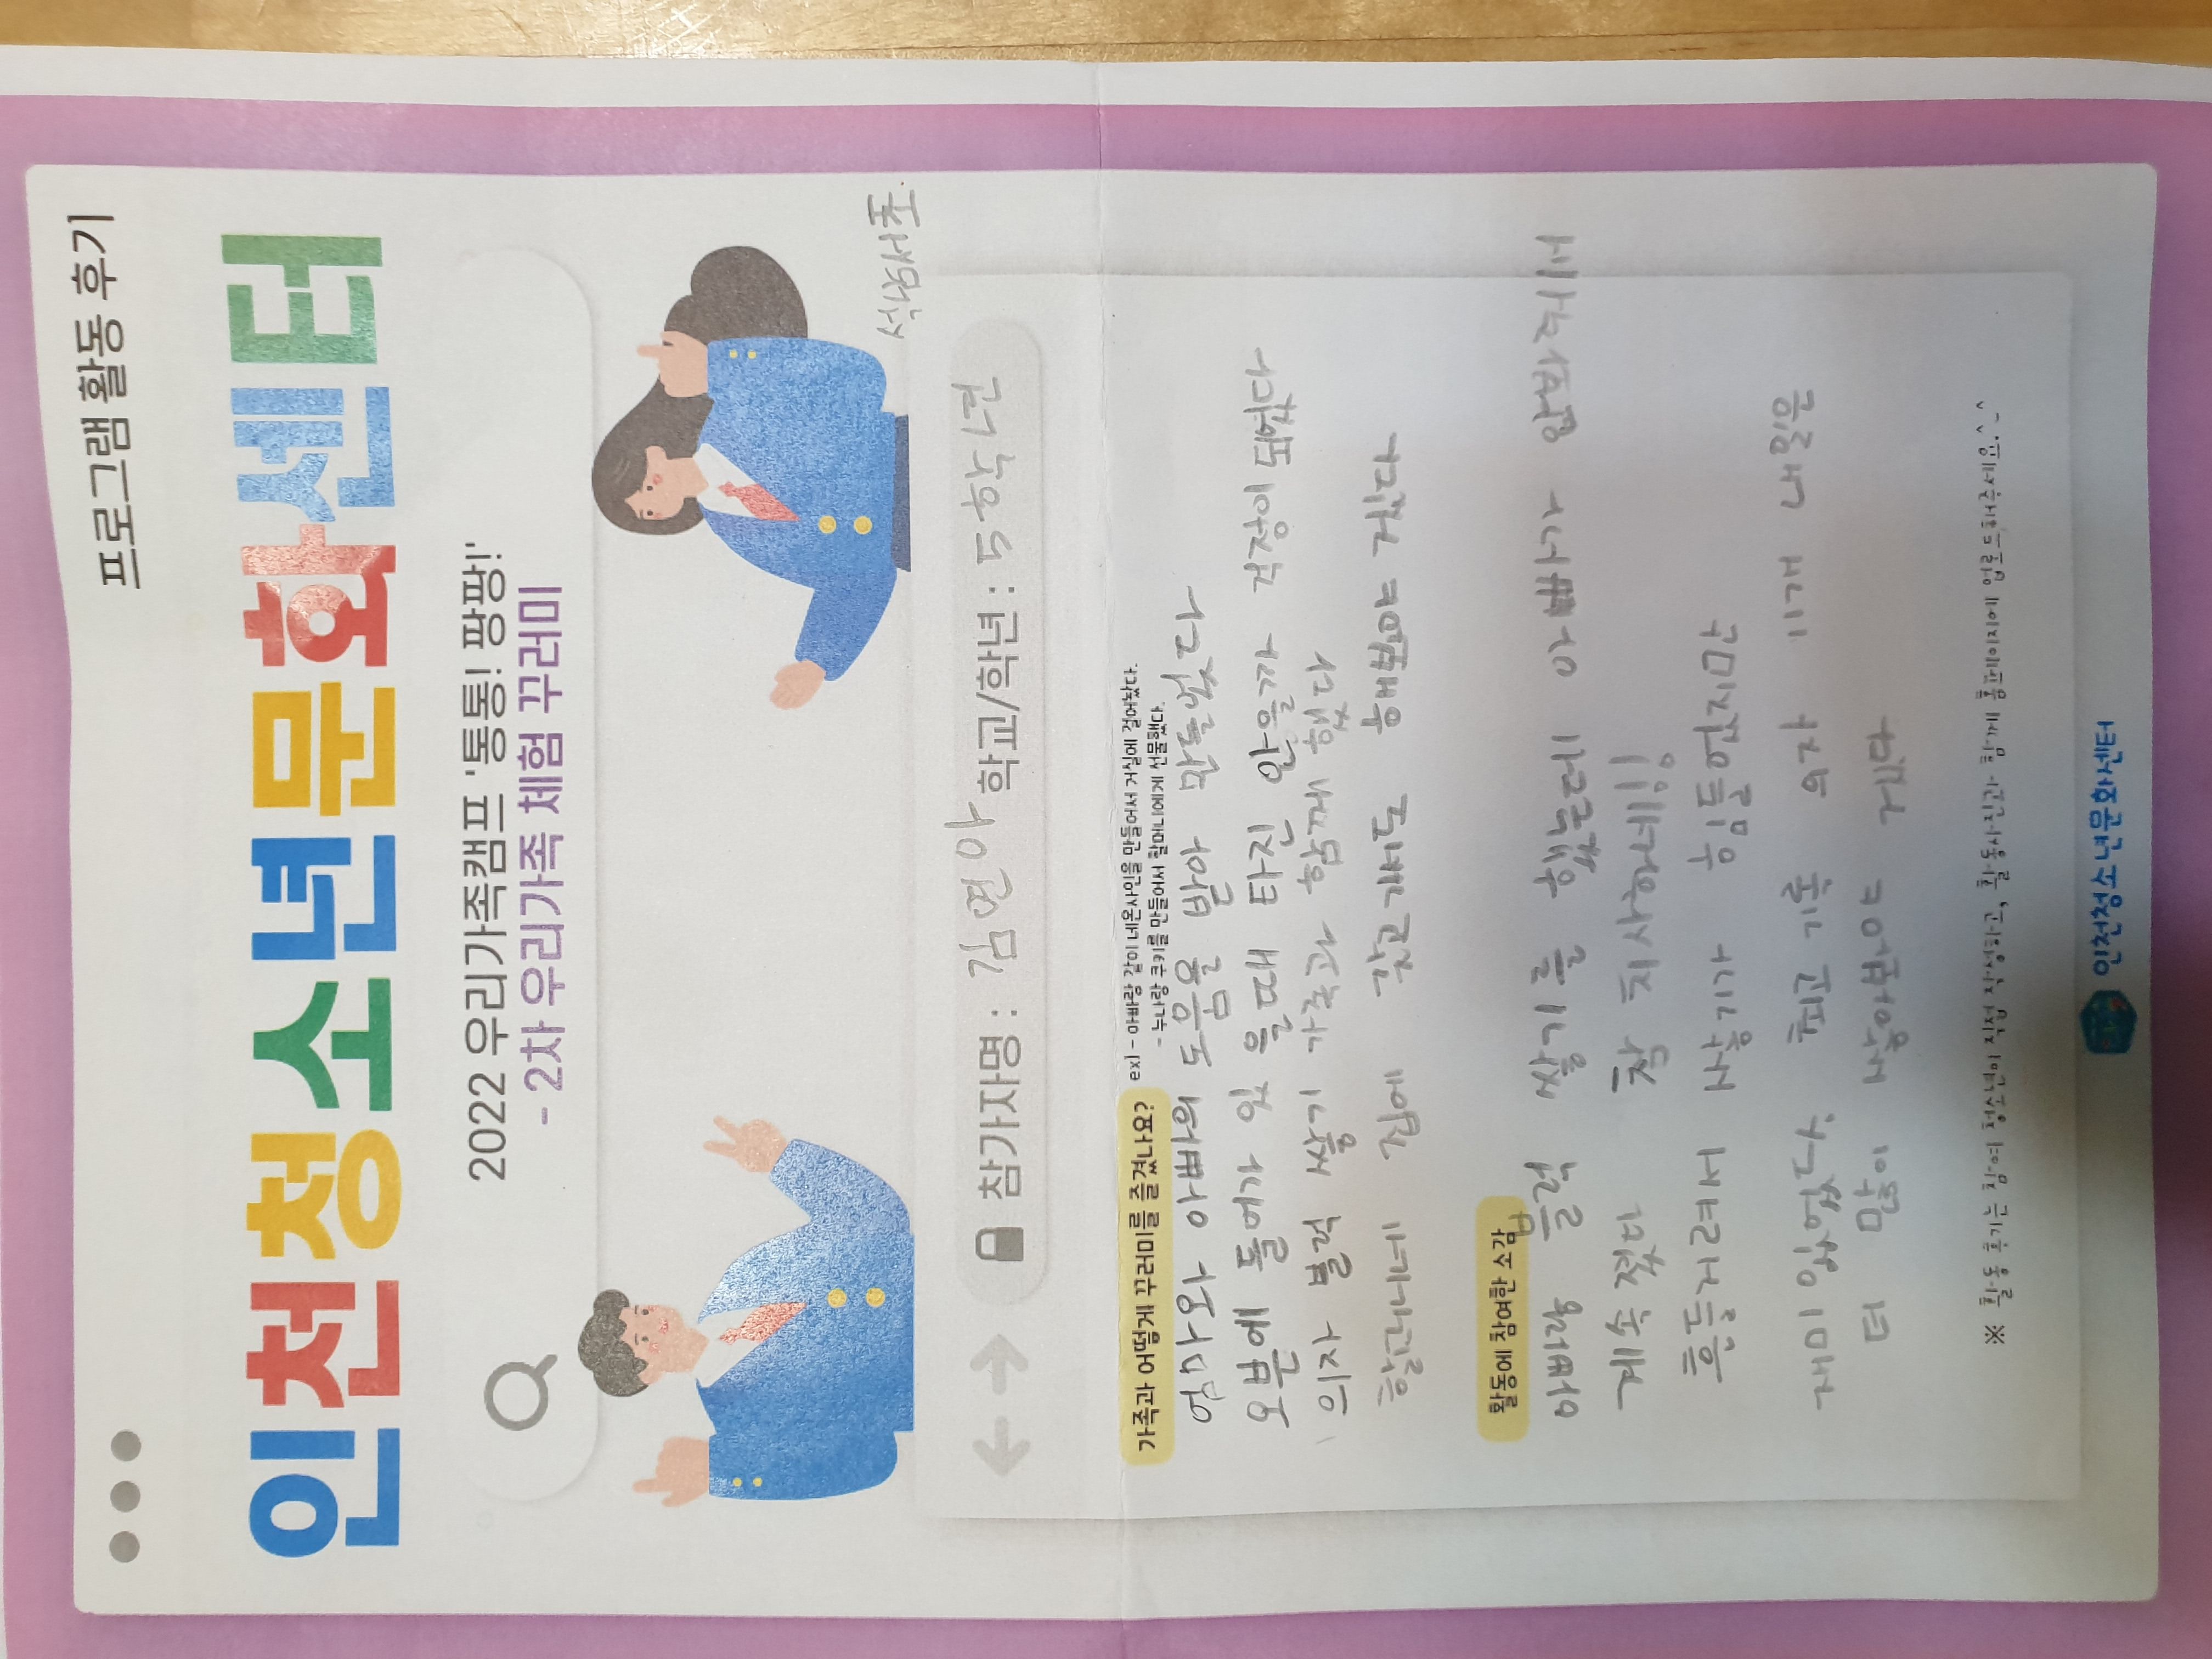 프로그램 활동 후기
인천청소년문화센터
2022 우리가족캠프 '통통! 팡팡!'
- 2차 우리가족 체험 꾸러미
석남서초
참가자명 : 김연아 학교/학년 : 5학년
가족과 어떻게 꾸러미를 즐겼나요? ex) - 아빠랑 같이 네온사인을 만들어서 거실에 걸어놨다.
- 누나랑 쿠키를 만들어서 할머니에게 선물했다.
엄마와 아빠의 도움을 받아 만들었다
오븐에 돌에가 있을때 타진 않을까 걱정이 되었다
의자 블럭 쌓기 가족과 함께 했다
할머니네 집에 갖고개서도 해봐야 겠다
활동에 참여한 소감
아빠랑 블럭 쌓기를 했는데 아빠가 나 방해하네
계속 졌다 참 치사하네!!!
흔들거려서 쌓기가 힘들었지만
재미있었다. 최고 기록 9자 이게 내일은
더 많이 쌓아봐야 겠다
※ 활동 후기는 참여 청소년이 직접 작성하고, 활동사진과 함께 홈페이지에 업로드해주세요.^_^
인천청소년문화센터